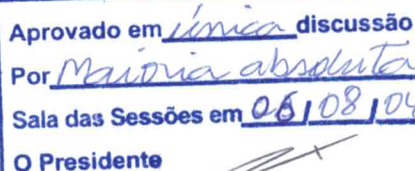 Aprovado em única discussão
Por Maioria absoluta
Sala das Sessões em 06/08/04
O Presidente